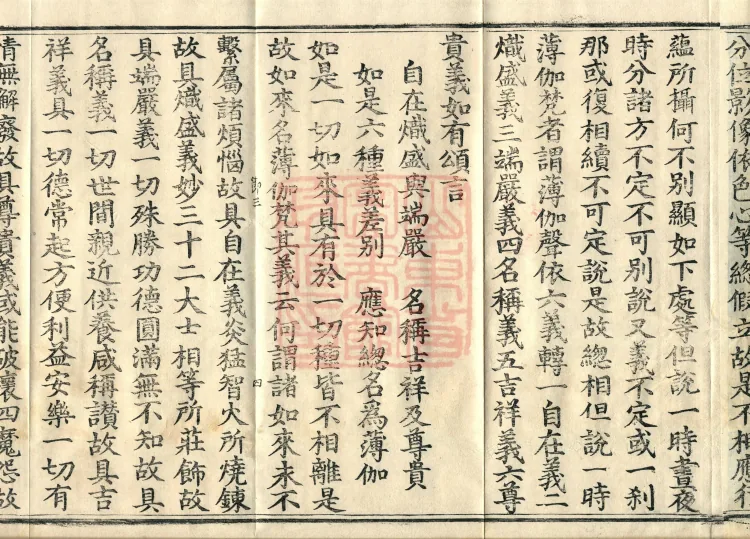 分位影像依色心等總假立故是不相應行
蘊所攝何不別顯如下處等但說一時晝夜
時分諸方不定不可別說又義不定或一剎
那或復相續不可定說是故總相但說一時
薄伽梵者謂薄伽聲依六義轉一自在義二
熾盛義三端嚴義四名稱義五吉祥義六尊
貴義如有頌言
自在熾盛與端嚴 名稱吉祥及尊貴
如是六種義差別 應知總名為薄伽
如是一切如來具有於一切種皆不相離是
故如來名薄伽梵其義云何謂諸如來未不
四
繫屬諸煩惱故具自在義炎猛智火所燒鍊
故具熾盛義妙三十二大士相等所莊飾故
具端嚴義一切殊勝功德圓滿無不知故具
名稱義一切世間親近供養咸稱讚故具吉
祥義具一切德常起方便利益安樂一切有
情無懈廢故具尊貴義或能破壞四魔怨故